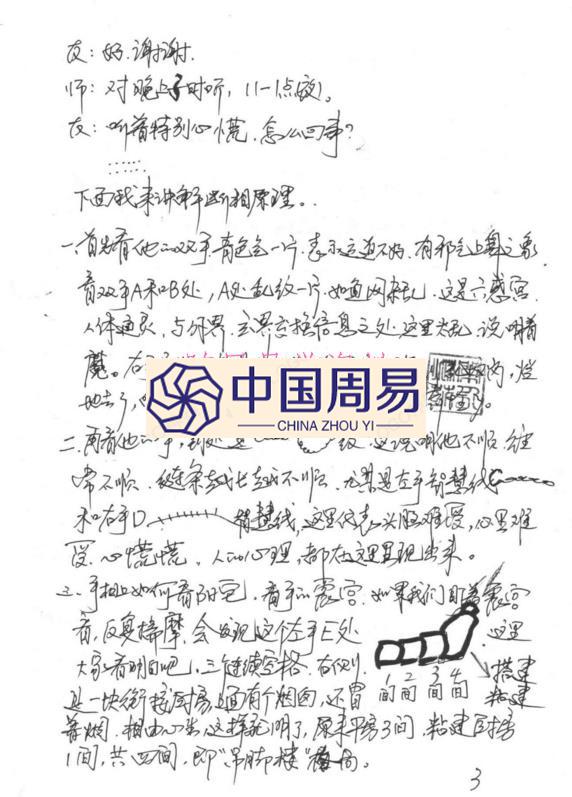 友：好.谢谢.
师：对晚上子时听，11—1点钟。
友：听着特别心慌，怎么回事？
……
下面我来讲解断相原理。
一.首先看他的双手.青色全一片.表示运道不好.有邪气上身之象
看双手A和B处，A处乱纹一片.如鱼网杂乱.这是六感宫
人体通灵，与外界.玄界交换信息之处.这里太乱，说明着
魔。
中国周易
CHINA ZHOU YI
二.再看他 这说明他不顺.经
常不顺. 越不顺.尤其是左手智慧线
和右手D 智慧线，这里代表头脑难受，心里难
受.心慌慌，人的心理，都在这里显现出来。
三.手相上如何看阳宅，看手的震宫.如果我们目着震宫
看，反复揣摩.会发现这个左手E处 这里
大家看明白吧，三个连续空格.右侧
是一块衔接厨房.上面有个烟囱，还冒
1间 2间 3间 4间
搭建
粘建
着烟.相由心生.这样说明了，原来平房3间，粘建厨房
1间，共四间，即“吊脚楼”格局。
3